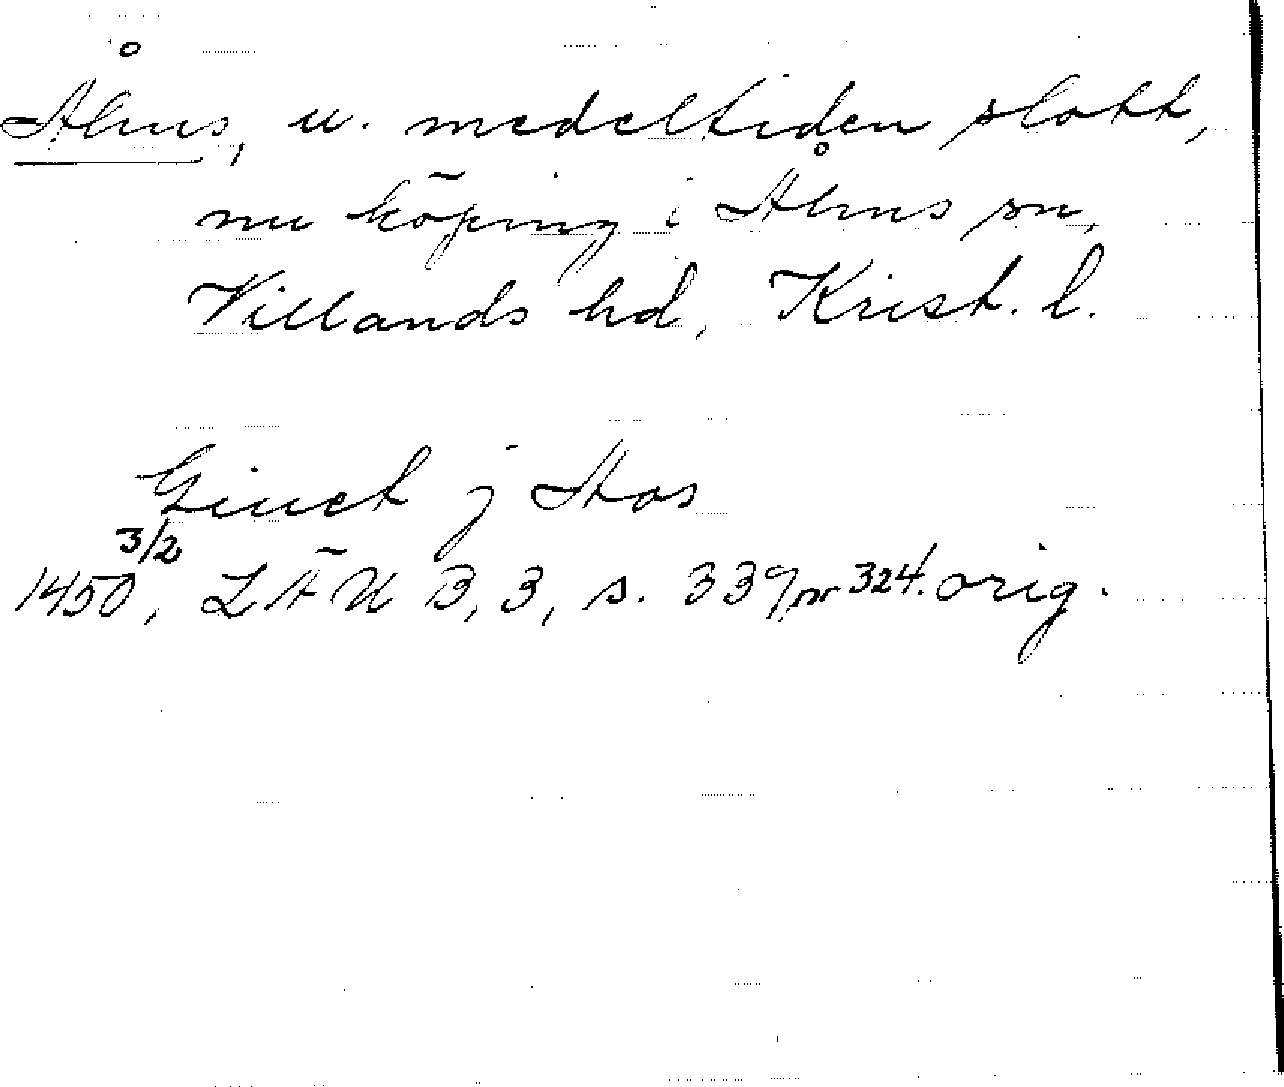 Åhus, u. medeltiden slott,
nu köping i Åhus sn,
Villands hd, Krist. l.
Giuet j Aos
1450 3/2, LÄU B, 3, s. 339, nr 324. orig.